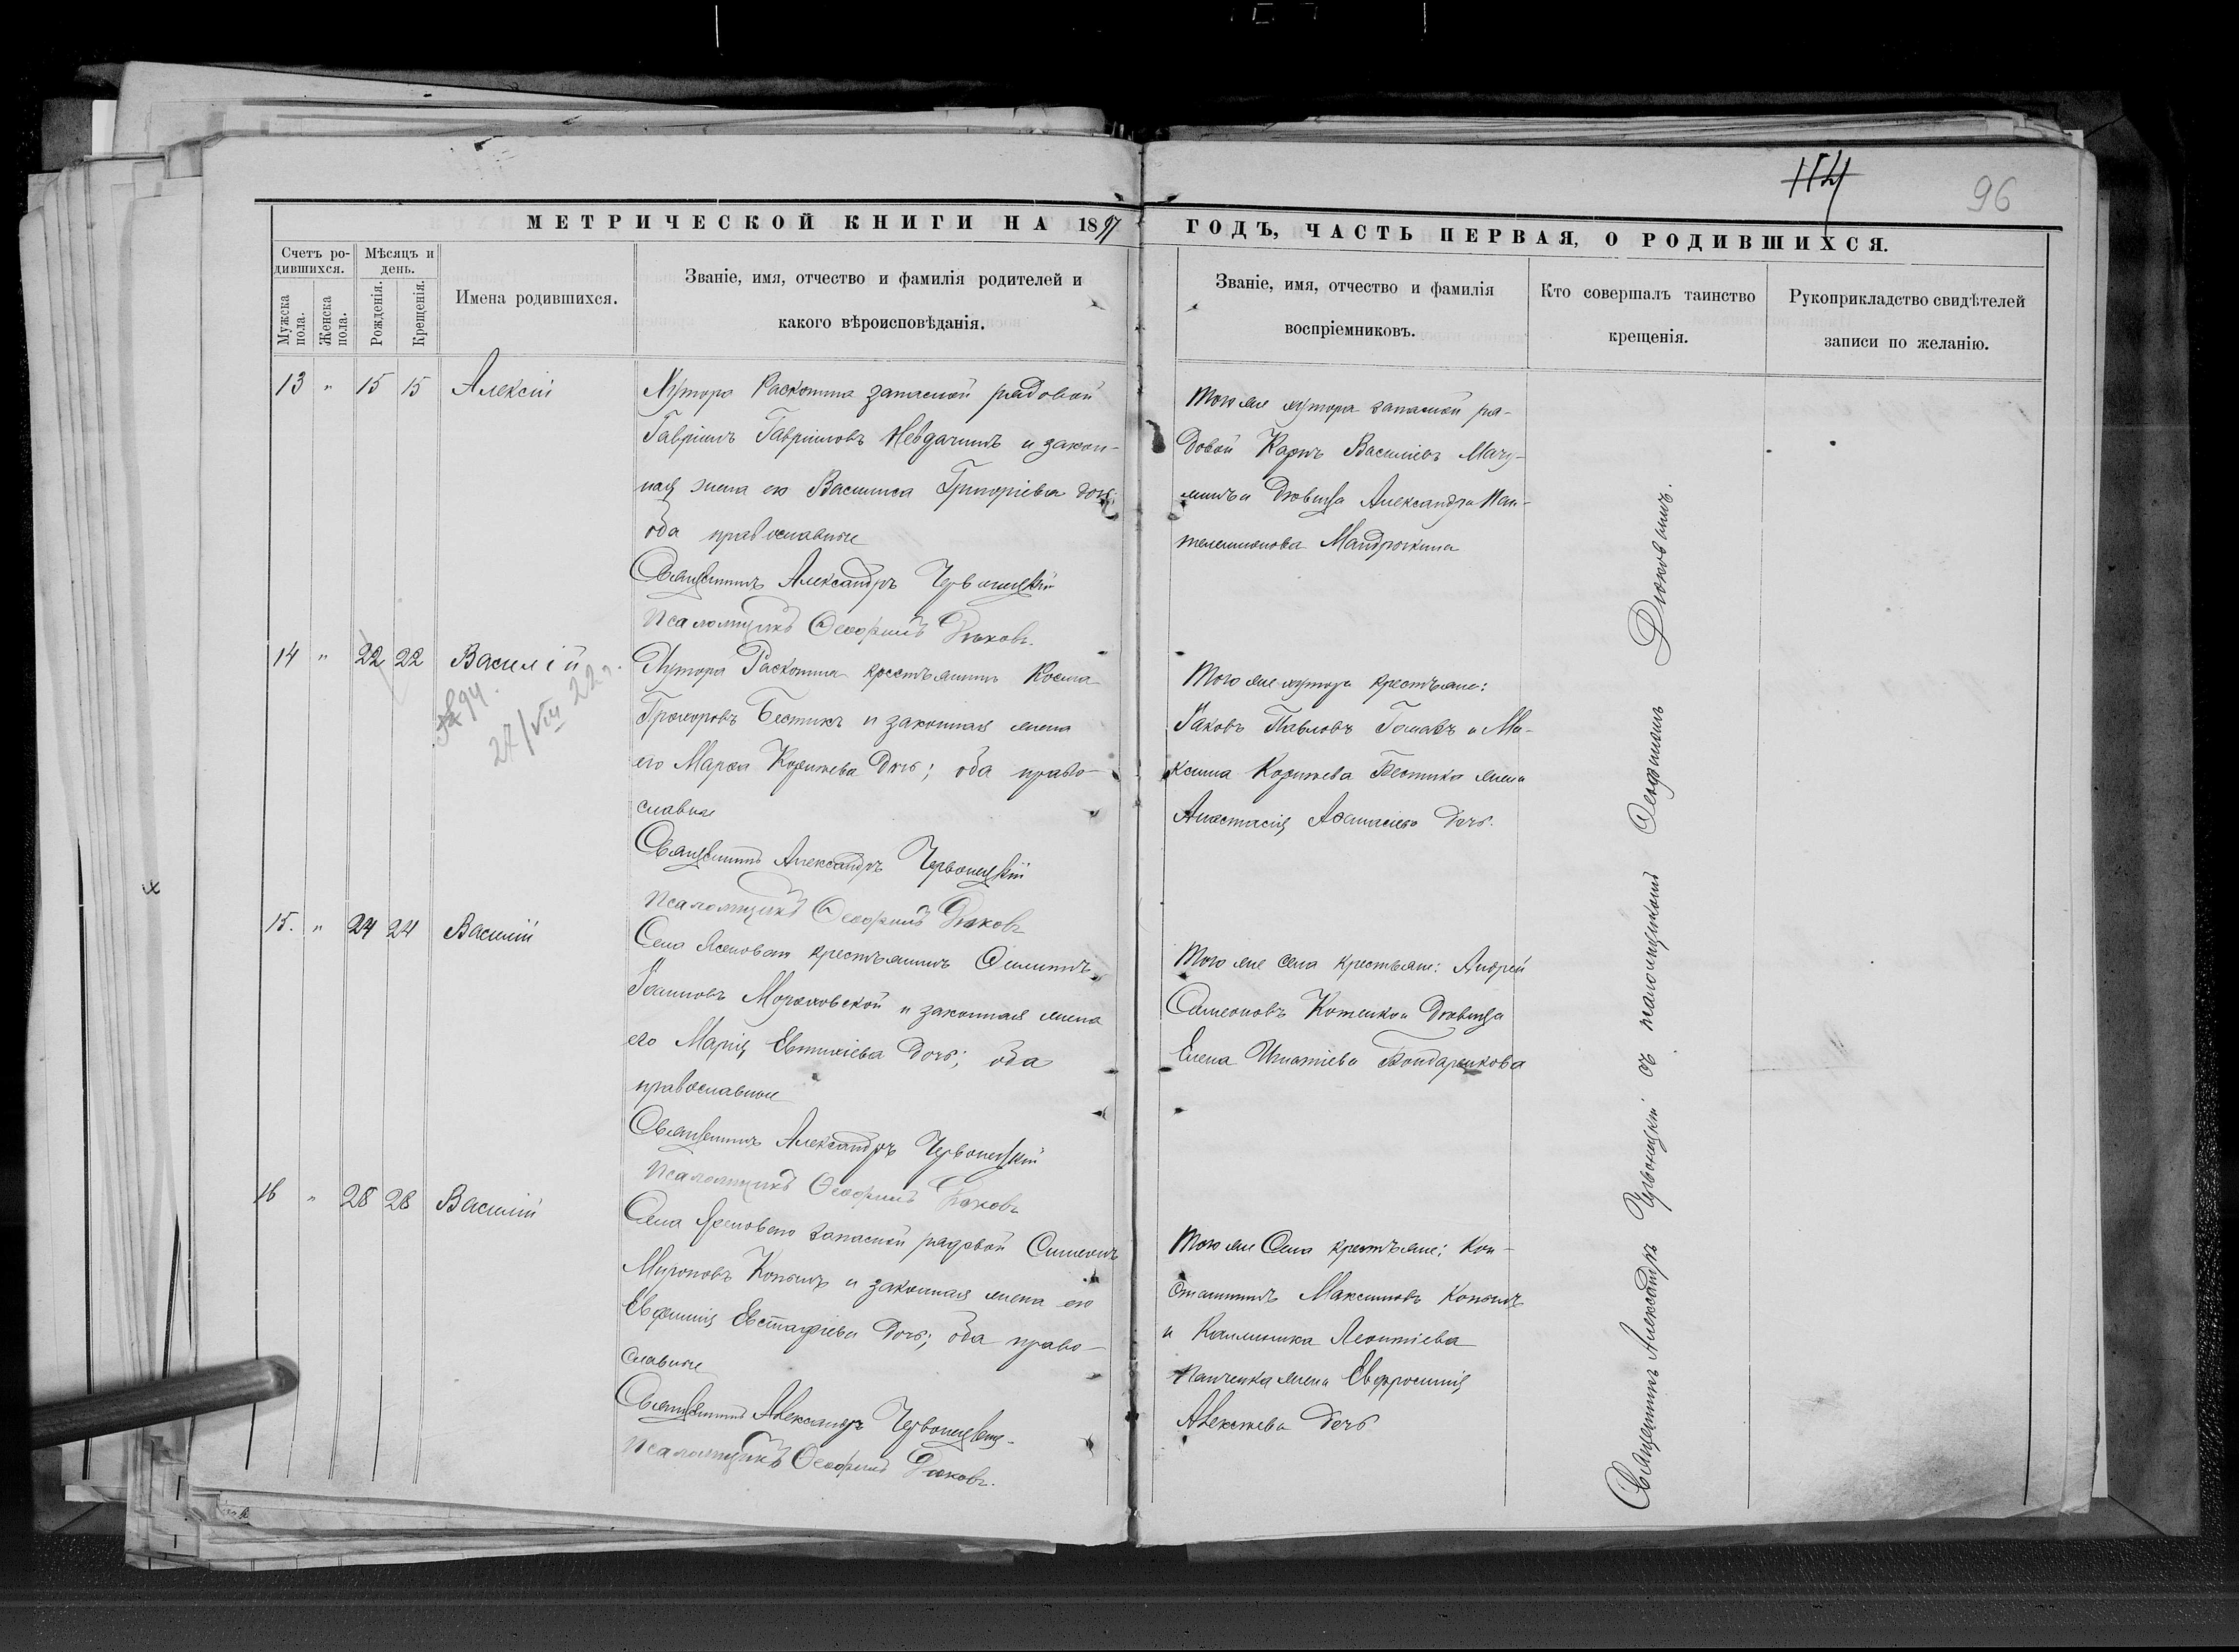 114
96
МЕТРИЧЕСКОЙ КНИГИ НА 1897 ГОДЪ, ЧАСТЬ ПЕРВАЯ, О РОДИВШИХСЯ.
Счетъ родившихся.
Мужска пола.
Женска пола.
Мѣсяцъ и день.
Рожденія.
Крещенія.
Имена родившихся.
Званіе, имя, отчество и фамилія родителей и
какого вѣроисповѣданія.
Званіе, имя, отчество и фамилія
воспріемниковъ.
Кто совершалъ таинство
крещенія.
Рукоприкладство свидѣтелей
записи по желанію.
13 " 15 15 Алексій
Хутора Раскопина запасной рядовой
Гавріилъ Гавріиловъ Невдачинъ и закон-
ная жена его Васса Григоріева дочь;
оба православные
Священникъ Александръ Червонецкій
Псаломщикъ Ѳеофилъ Дюковъ.
Того же хутора запасной ря-
довой Карпъ Василіевъ Мачу-
линъ и дѣвица Александра Пан-
телеимонова Мандрыкина
14 " 22 22 Василій
№ 94.
27/VIII 22 г.
Хутора Раскопина крестьянинъ Косма
Прохоровъ Бестикъ и законная жена
его Марѳа Корнѣева дочь; оба право-
славные
Священникъ Александръ Червонецкій
Псаломщикъ Ѳеофилъ Дюковъ
Того же хутора крестьяне:
Іаковъ Павловъ и Ма-
ксима Корнѣева Бестика жена
Анастасія Аѳанасіева дочь.
15. " 24 24 Василій
Села Ясеноваго крестьянинъ Филиппъ
Іоанновъ Мораховской и законная жена
его Марія Евтихіева дочь; оба
православные
Священникъ Александръ Червонецкій
Псаломщикъ Ѳеофилъ Дюковъ
Того же села крестьяне: Андрей
Симеоновъ Котенко и дѣвица
Елена Игнатіева Бондаренкова
16 " 28 28 Василій
Села Ясеноваго запасной рядовой Симеонъ
Мироновъ Копылъ и законная жена его
Евфимія Евстафіева дочь; оба право-
славные
Священникъ Александръ Червонецкій
Псаломщикъ Ѳеофилъ Дюковъ.
Того же Села крестьяне: Кон-
стантинъ Максимовъ Копылъ
и Каллиника Леонтіева
Панченка жена Евфросинія
Алексѣева дочь
Священникъ Александръ Червонецкій съ псаломщикомъ Ѳеофиломъ Дюковымъ.